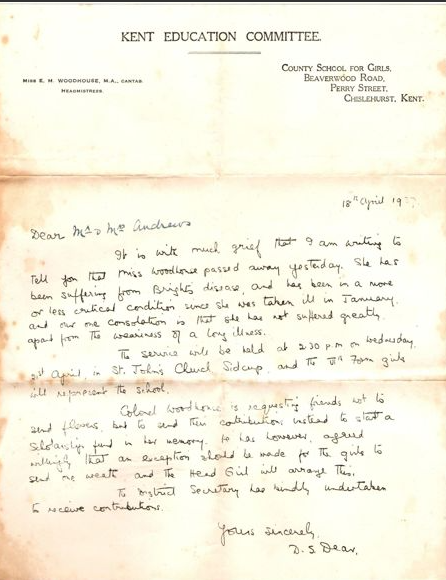 KENT EDUCATION COMMITTEE.
MISS E. M. WOODHOUSE, M.A., CANTAB.
HEADMISTRESS.
COUNTY SCHOOL FOR GIRLS,
BEAVERWOOD ROAD,
PERRY STREET,
CHISLEHURST, KENT.
18th April 19
Dear Mr & Mrs Andrews
It is with much grief that I am writing to
tell you that Miss Woodhouse passed away yesterday. She has
been suffering from Bright's disease, and has been in a more
or less critical condition since she was taken ill in January,
and our one consolation is that she has not suffered greatly,
apart from the weariness of a long illness.
The service will be held at 2.30 p.m on Wednesday,
April in St. John's Church, Sidcup, and the VIth Form girls
will represent the school.
Colonel Woodhouse is requesting friends not to
send flowers, but to send their contributions instead to start a
Scholarship fund in her memory. He has, however, agreed
willingly that an exception should be made for the girls to
send one wreath and the Head Girl will arrange this.
The District Secretary has kindly undertaken
to receive contributions.
Yours sincerely,
D. S. Dear.